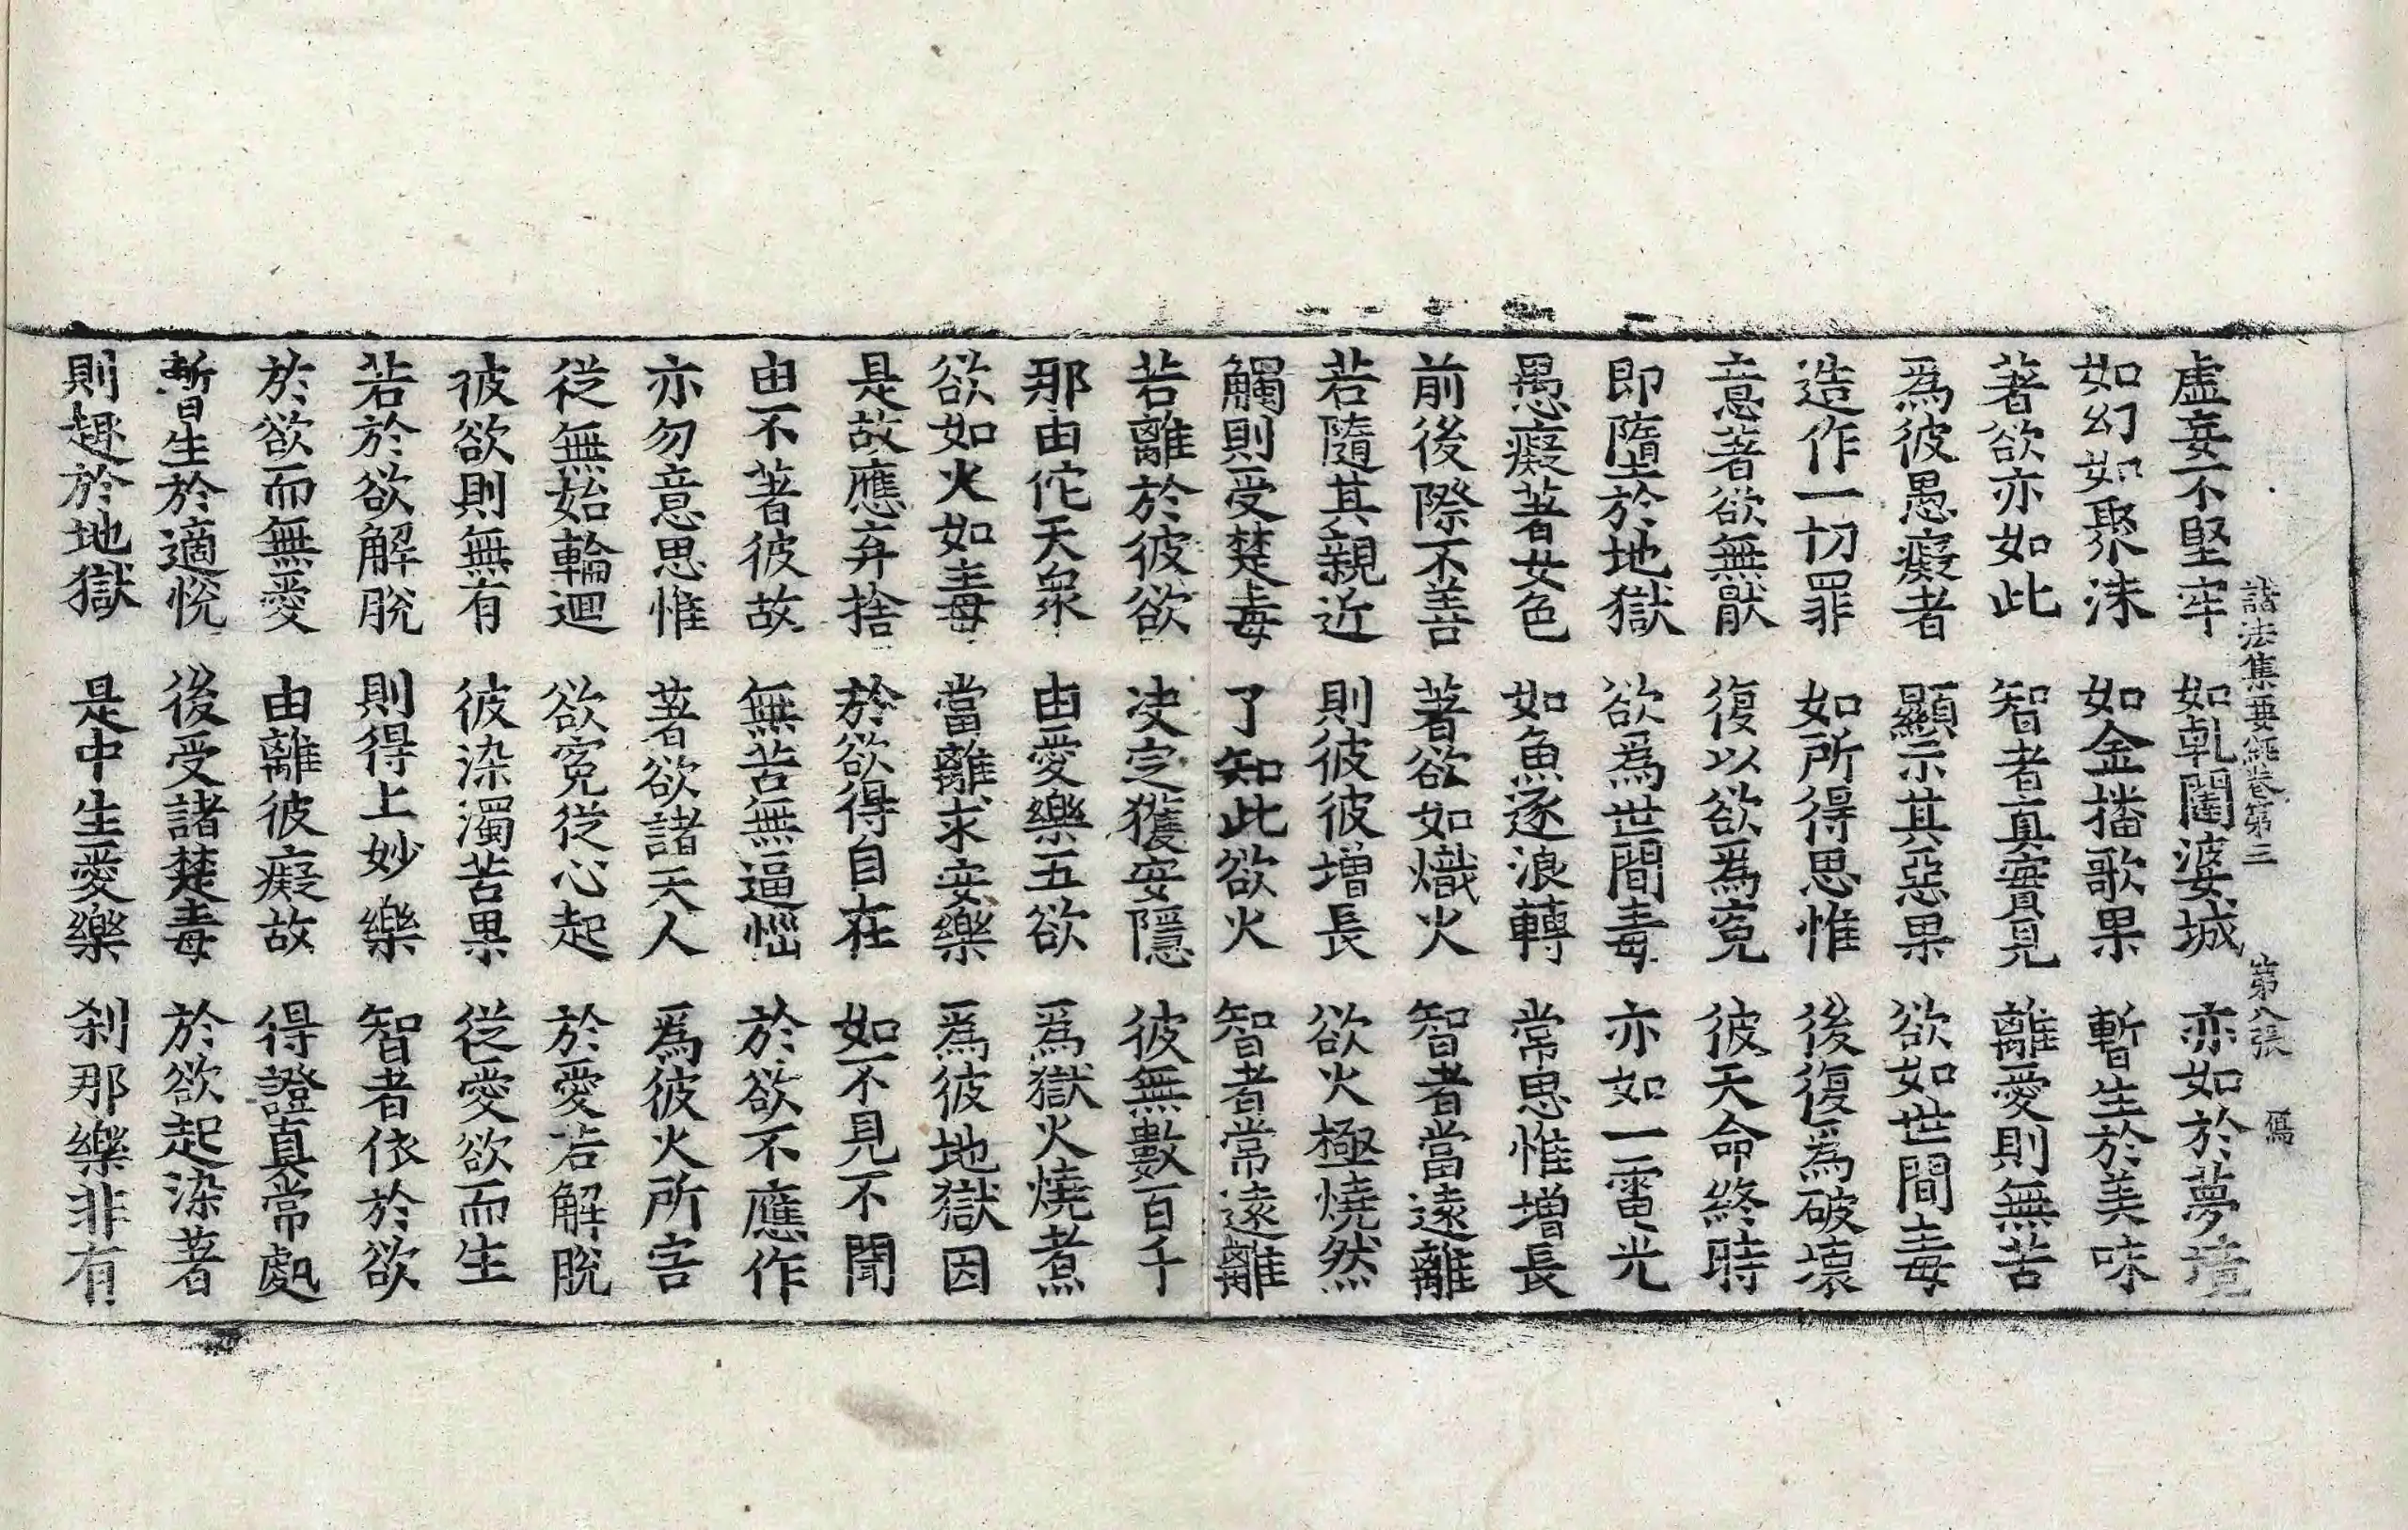 諸法集要經卷第三　第八張　傷
虛妄不堅牢　如乹闥婆城　亦如於夢境
如幻如聚沫　如金播歌果　暫生於美味
著欲亦如此　智者真實見　離愛則無苦
爲彼愚癡者　顯示其惡果　欲如世間毒
造作一切罪　如所得思惟　後復爲破壞
意著欲無猒　復以欲爲寃　彼天命終時
即墮於地獄　欲爲世間毒　亦如一電光
愚癡著女色　如魚逐浪轉　常思惟增長
前後際不善　著欲如熾火　智者當遠離
若隨其親近　則彼彼增長　欲火極燒然
觸則受楚毒　了知此欲火　智者常遠離
若離於彼欲　决定獲安隱　彼無數百千
那由佗天衆　由愛樂五欲　爲獄火燒煮
欲如火如毒　當離求安樂　爲彼地獄因
是故應弃捨　於欲得自在　如不見不聞
由不著彼故　無苦無逼惱　於欲不應作
亦勿意思惟　著欲諸天人　爲彼火所害
從無始輪迴　欲寃從心起　於愛若解脫
彼欲則無有　彼染濁苦果　從愛欲而生
若於欲解脫　則得上妙樂　智者依於欲
於欲而無愛　由離彼癡故　得證真常處
暫生於適悅　後受諸楚毒　於欲起染著
則趣於地獄　是中生愛樂　刹那樂非有